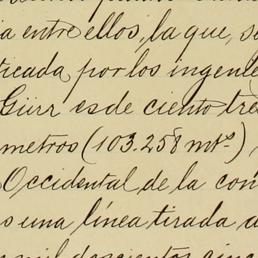 a entre ellos, la que, se
ticada por los ingenie
Gürr es de ciento tre
metros (103.258 mts)
Occidental de la con
s una línea tirada d